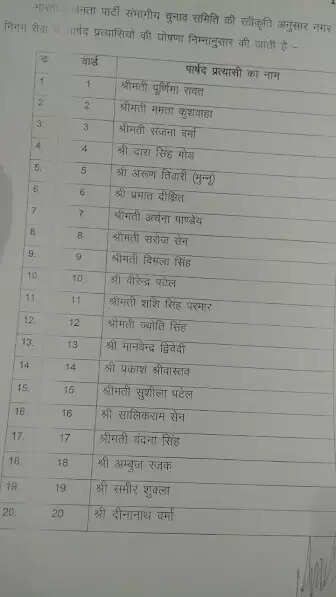 जनता पार्टी संभागीय चुनाव समिति की स्वीकृति अनुसार नगर
निगम रीवा पार्षद प्रत्याशियों की घोषणा निम्नानुसार की जाती है –
वार्ड पार्षद प्रत्याशी का नाम
1 1 श्रीमती पूर्णिमा रावत
2 2 श्रीमती ममता कुशवाहा
3. 3 श्रीमती संजना वर्मा
4. 4 श्री दारा सिंह गोड
5. 5 श्री अरूण तिवारी (मुन्नू)
6. 6 श्री प्रभात दीक्षित
7 7 श्रीमती अर्चना पाण्डेय
8 8 श्रीमती सरोज सेन
9. 9 श्रीमती विमला सिंह
10. 10 श्री वीरेन्द्र पटेल
11. 11 श्रीमती शशि सिंह परमार
12. 12 श्रीमती ज्योति सिंह
13. 13 श्री मानवेन्द्र द्विवेदी
14 14 श्री प्रकाश श्रीवास्तव
15. 15 श्रीमती सुशीला पटेल
16 16 श्री सालिकराम सेन
17. 17 श्रीमती वंदना सिंह
18. 18 श्री अम्बुज रजक
19. 19 श्री समीर शुक्ला
20. 20 श्री दीनानाथ वर्मा